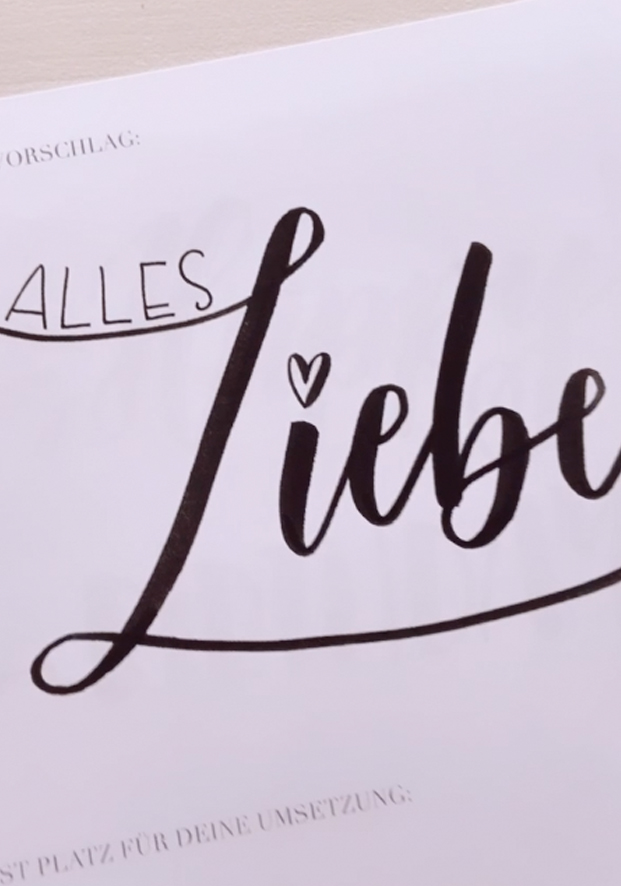 VORSCHLAG:
ALLES
Liebe
ST PLATZ FÜR DEINE UMSETZUNG: